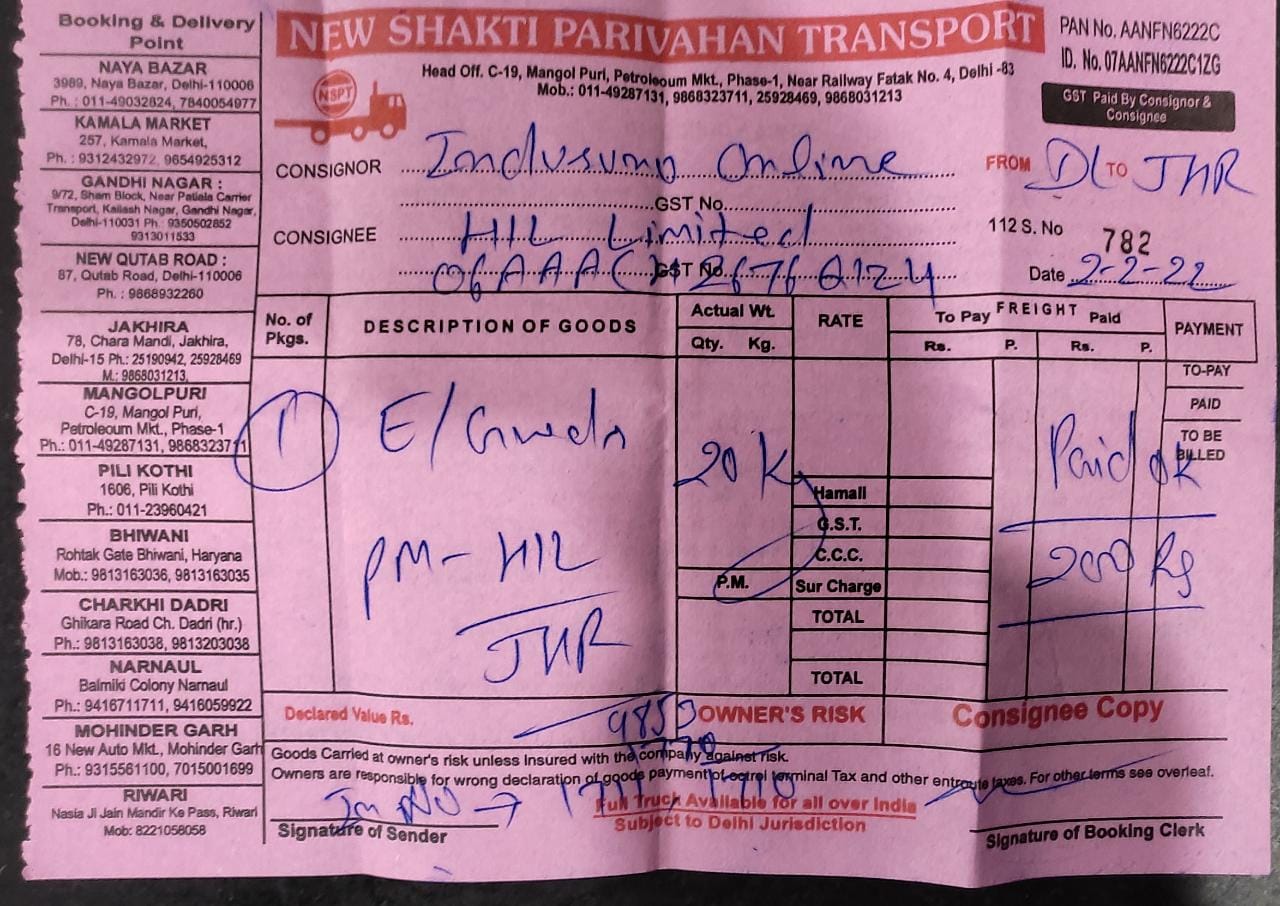 Booking & Delivery
Point
NAYA BAZAR
3989, Naya Bazar, Delhi-110006
Ph. : 011-49032824, 7840054977
KAMALA MARKET
257, Kamala Market,
Ph. : 9312432972, 9654925312
GANDHI NAGAR :
9/72, Sham Block, Near Patiala Carrier
Transport, Kailash Nagar, Gandhi Nagar,
Delhi-110031 Ph. 9350502852
9313011533
NEW QUTAB ROAD :
87, Qutab Road, Delhi-110006
Ph. : 9868932260
JAKHIRA
78, Chara Mandi, Jakhira,
Delhi-15 Ph.: 25190942, 25928469
M.: 9868031213,
MANGOLPURI
C-19, Mangol Puri,
Petroleoum Mkt., Phase-1
Ph.: 011-49287131, 9868323711
PILI KOTHI
1606, Pili Kothi
Ph.: 011-23960421
BHIWANI
Rohtak Gate Bhiwani, Haryana
Mob.: 9813163036, 9813163035
CHARKHI DADRI
Ghikara Road Ch. Dadri (hr.)
Ph.: 9813163038, 9813203038
NARNAUL
Balmiki Colony Narnaul
Ph.: 9416711711, 9416059922
MOHINDER GARH
16 New Auto Mkt., Mohinder Garh
Ph.: 9315561100, 7015001699
RIWARI
Nasia Ji Jain Mandir Ke Pass, Riwari
Mob: 8221058058
NEW SHAKTI PARIVAHAN TRANSPORT
NSPT
Head Off. C-19, Mangol Puri, Petroleoum Mkt., Phase-1, Near Railway Fatak No. 4, Delhi -83
Mob.: 011-49287131, 9868323711, 25928469, 9868031213
PAN No. AANFN6222C
ID. No. 07AANFN6222C1ZG
GST Paid By Consignor &
Consignee
CONSIGNOR Online
FROM DL TO JHR
GST No.
CONSIGNEE HIL Limited
112 S. No 782
GST No.
Date 2-2-22
No. of Pkgs. DESCRIPTION OF GOODS Actual Wt. Qty. Kg. RATE FREIGHT To Pay Rs. P. Paid Rs. P. PAYMENT
TO-PAY
PAID
TO BE BILLED
1 20 Kg Paid ok
Hamali
G.S.T.
C.C.C.
PM- HIL 2000 Rs
P.M. Sur Charge
TOTAL
JHR
TOTAL
Declared Value Rs. OWNER'S RISK Consignee Copy
Goods Carried at owner's risk unless Insured with the company against risk.
Owners are responsible for wrong declaration of goods payment of octroi terminal Tax and other entroute taxes. For other terms see overleaf.
Full Truck Available for all over India
Subject to Delhi Jurisdiction
Signature of Sender
Signature of Booking Clerk